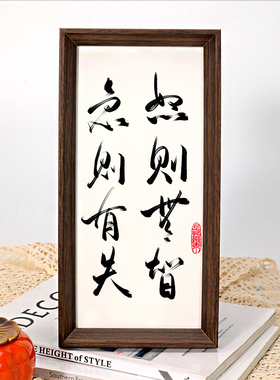 怒则無智
急则有失
HEIGHT of STYLE